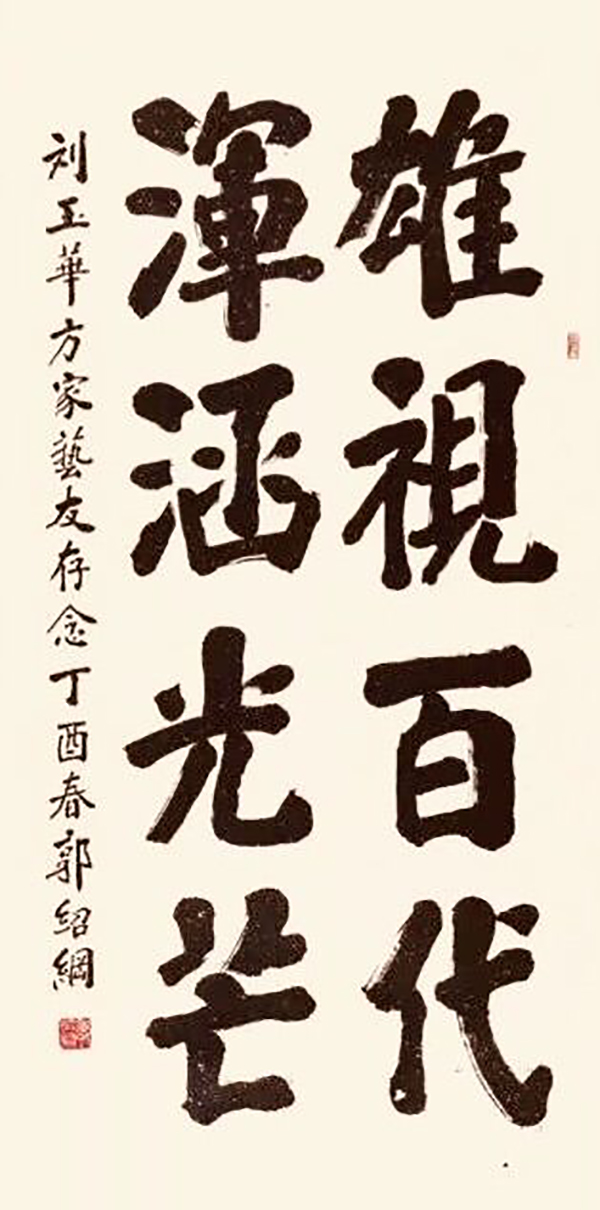 雄視百代
渾涵光芒
刘玉華方家藝友存念丁酉春郭绍綱